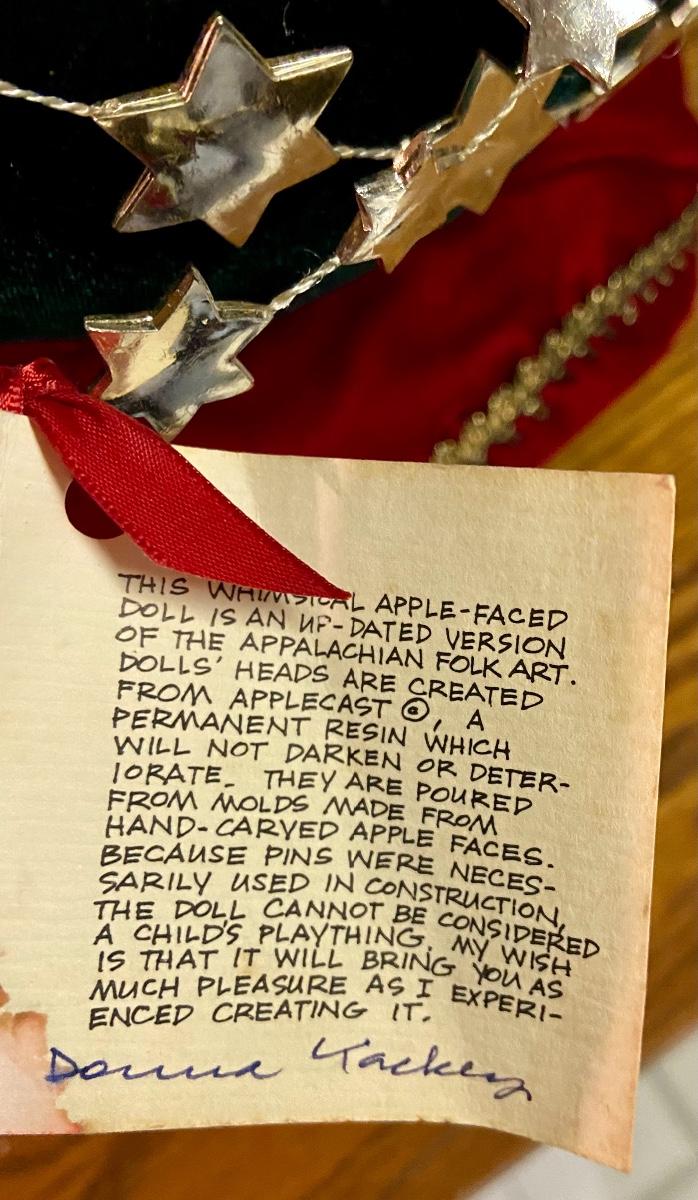 THIS WHIMSICAL APPLE-FACED
DOLL IS AN UP-DATED VERSION
OF THE APPALACHIAN FOLK ART.
DOLLS' HEADS ARE CREATED
FROM APPLECAST ©, A
PERMANENT RESIN WHICH
WILL NOT DARKEN OR DETER-
IORATE. THEY ARE POURED
FROM MOLDS MADE FROM
HAND-CARVED APPLE FACES.
BECAUSE PINS WERE NECES-
SARILY USED IN CONSTRUCTION,
THE DOLL CANNOT BE CONSIDERED
A CHILD'S PLAYTHING. MY WISH
IS THAT IT WILL BRING YOU AS
MUCH PLEASURE AS I EXPERI-
ENCED CREATING IT.
Donna